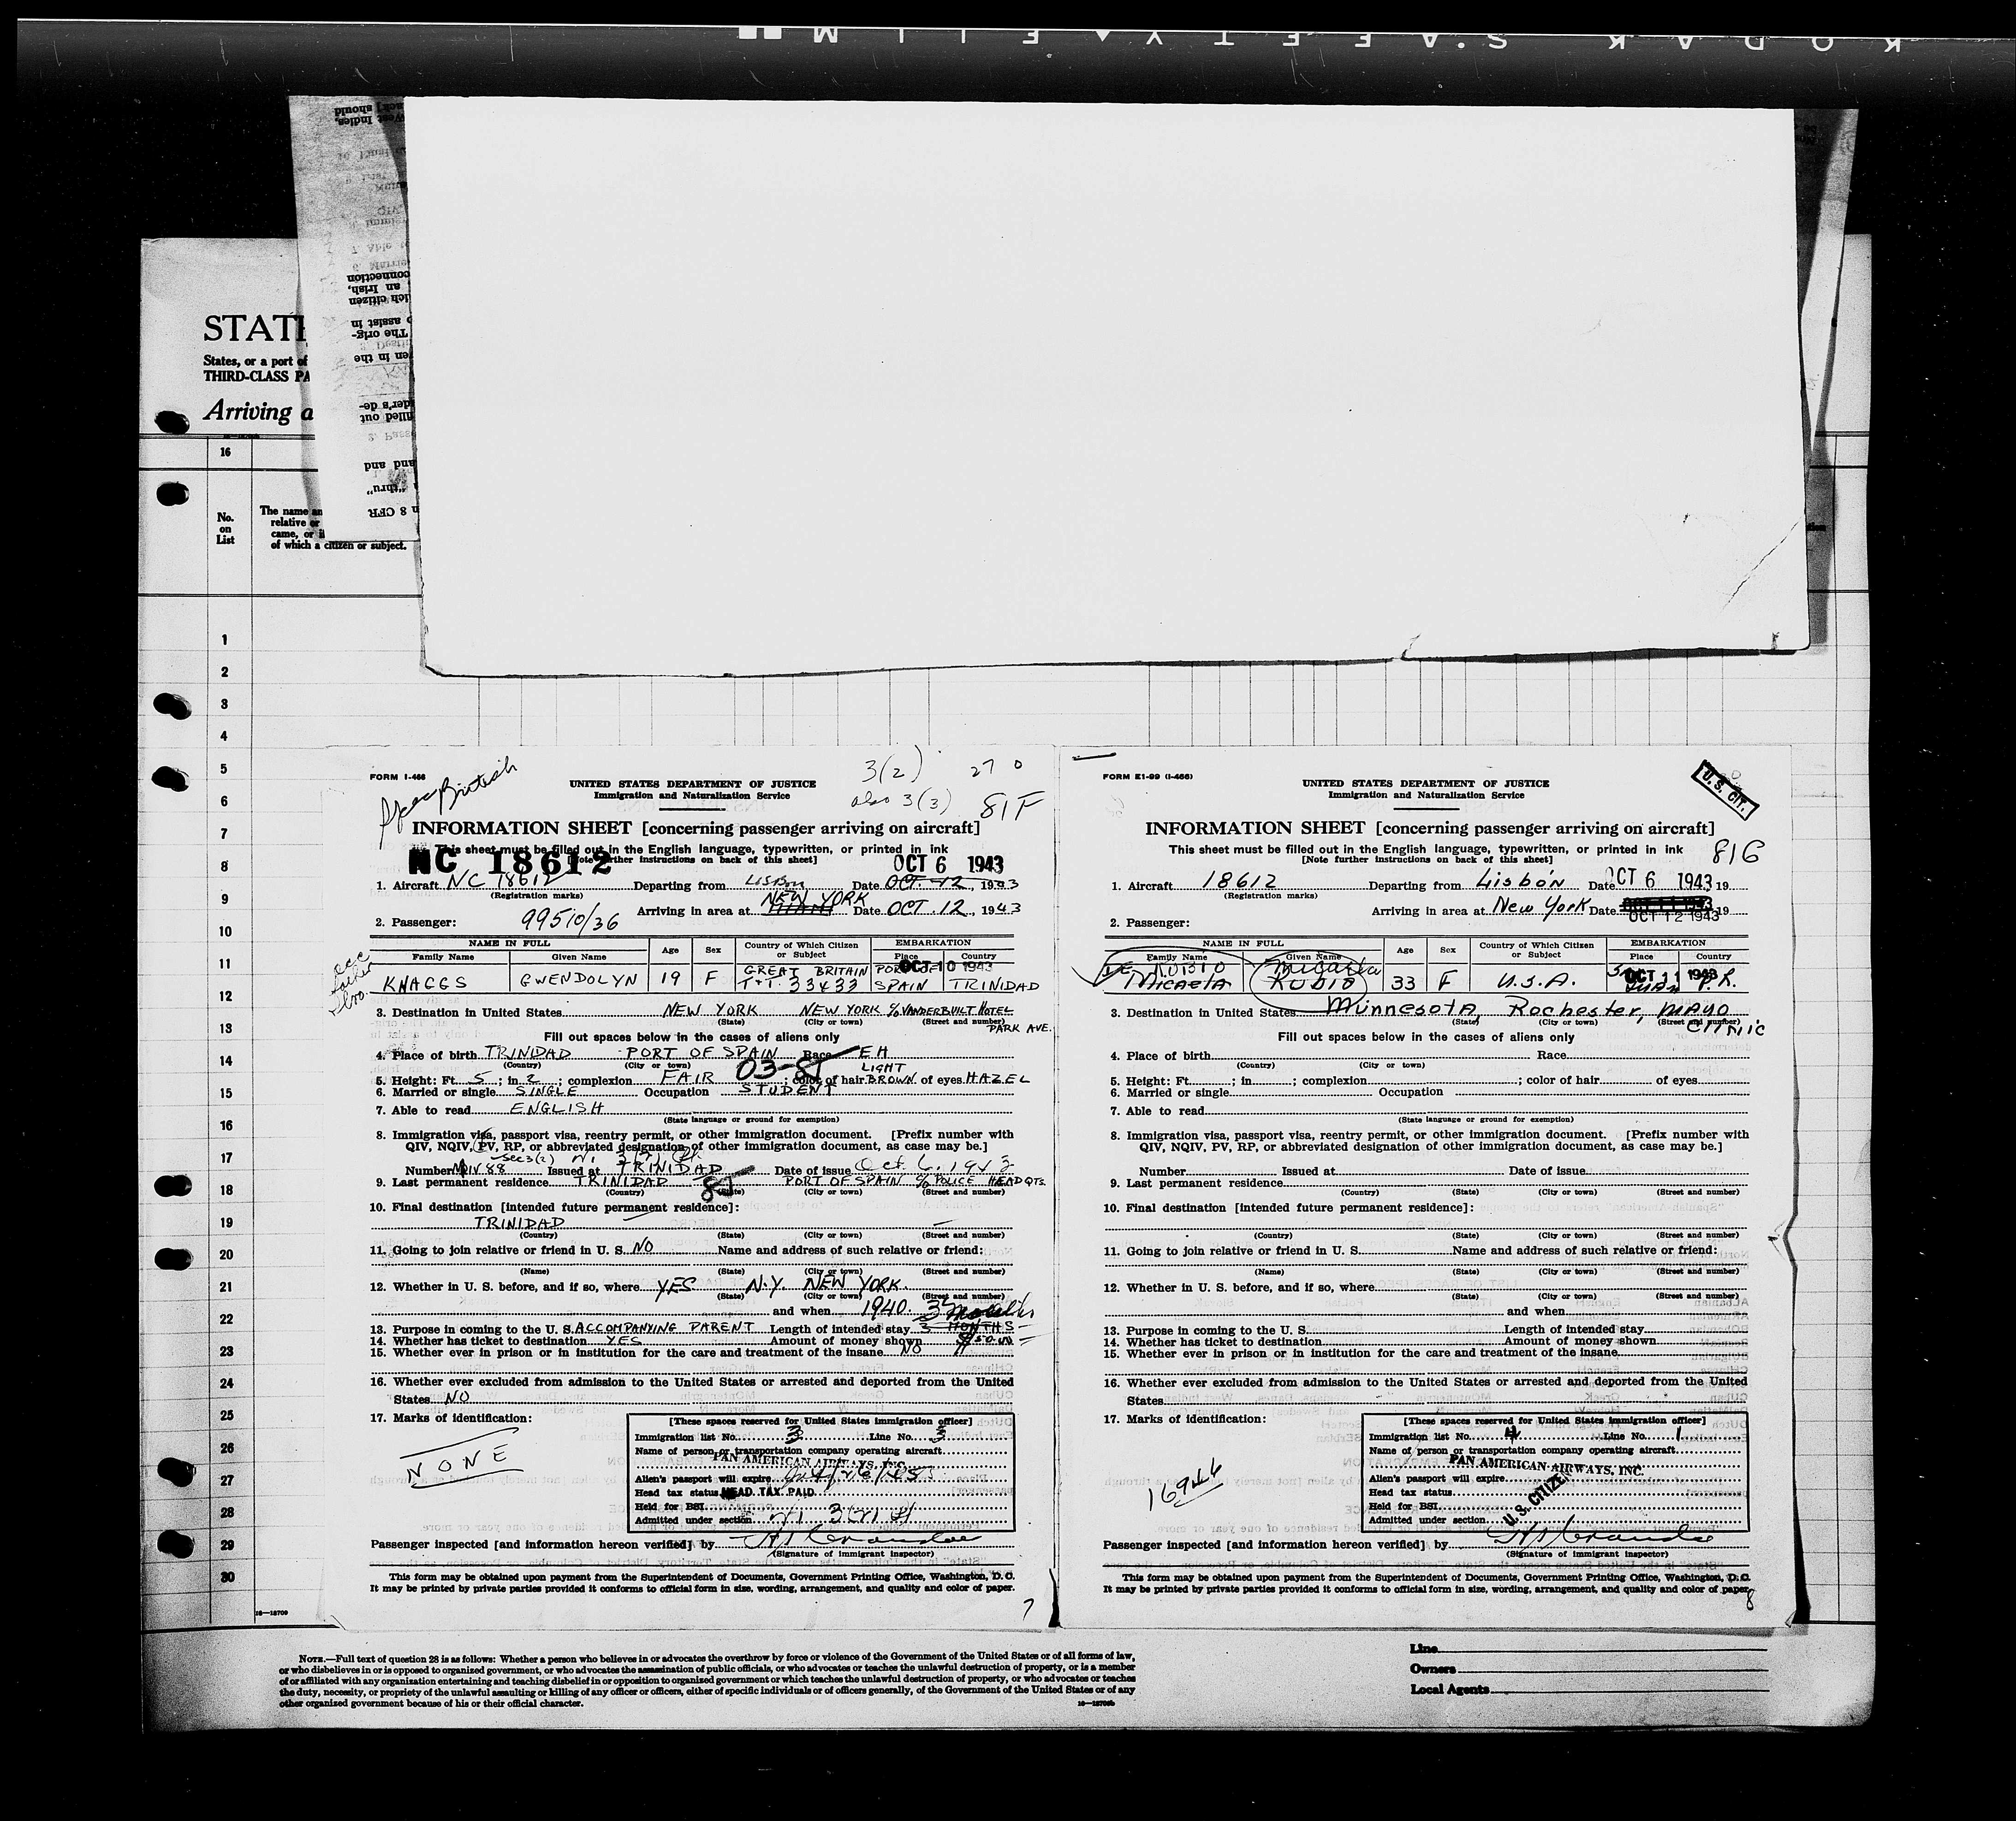 KODAK SAFETY FILM
STATE
States, or a port of
THIRD-CLASS PA
Arriving a
16
No.
on
List
The name an
relative or
came, or i
of which a citizen or subject.
1
2
3
4
5
6
7
8
9
10
11
12
13
14
15
16
17
18
19
20
21
22
23
24
25
26
27
28
29
30
FORM I-466
British
3(2) 27 0
also 3(3) 81F
UNITED STATES DEPARTMENT OF JUSTICE
Immigration and Naturalization Service
INFORMATION SHEET [concerning passenger arriving on aircraft]
This sheet must be filled out in the English language, typewritten, or printed in ink
[Note further instructions on back of this sheet]
NC 18612 OCT 6 1943
1. Aircraft NC 18612 Departing from Lisbon Date OCT. 12, 1943
(Registration marks)
NEW YORK
Arriving in area at Date OCT. 12, 1943
2. Passenger: 99510/36
NAME IN FULL Age Sex Country of Which Citizen or Subject EMBARKATION
Family Name Given Name Place Country
OCT 10 1943
KNAGGS GWENDOLYN 19 F GREAT BRITAIN T+T. 33433 PORT OF SPAIN TRINIDAD
3. Destination in United States NEW YORK NEW YORK c/o VANDERBUILT HOTEL
(State) (City or town) (Street and number)
PARK AVE.
Fill out spaces below in the cases of aliens only
4. Place of birth TRINIDAD PORT OF SPAIN Race EH
(Country) (City or town) LIGHT
5. Height: Ft. 5; in 2; complexion FAIR; color of hair BROWN of eyes HAZEL
6. Married or single SINGLE Occupation STUDENT
7. Able to read ENGLISH
(State language or ground for exemption)
8. Immigration visa, passport visa, reentry permit, or other immigration document. [Prefix number with
QIV, NQIV, PV, RP, or abbreviated designation of other immigration document, as case may be.]
sec 3(2)
Number 88 Issued at TRINIDAD Date of issue Oct. 6, 1943
9. Last permanent residence TRINIDAD PORT OF SPAIN c/o POLICE HEADQTS.
(Country) (State) (City or town) (Street and number)
10. Final destination [intended future permanent residence]:
TRINIDAD
(Country) (State) (City or town) (Street and number)
11. Going to join relative or friend in U. S. NO Name and address of such relative or friend:
(Name) (State) (City or town) (Street and number)
12. Whether in U. S. before, and if so, where YES N.Y. NEW YORK.
(State) (City or town) (Street and number)
and when 1940. 3 months
13. Purpose in coming to the U. S. ACCOMPANYING PARENT Length of intended stay 3 MONTHS
14. Whether has ticket to destination YES Amount of money shown
15. Whether ever in prison or in institution for the care and treatment of the insane NO
16. Whether ever excluded from admission to the United States or arrested and deported from the United
States NO
17. Marks of identification:
NONE
[These spaces reserved for United States immigration officer]
Immigration list No. 3 Line No. 3
Name of person or transportation company operating aircraft
PAN AMERICAN AIRWAYS, INC.
Alien's passport will expire
Head tax status HEAD TAX PAID
Held for BSI
Admitted under section
Passenger inspected [and information hereon verified] by
(Signature of immigrant inspector)
This form may be obtained upon payment from the Superintendent of Documents, Government Printing Office, Washington, D. C.
It may be printed by private parties provided it conforms to official form in size, wording, arrangement, and quality and color of paper.
7
FORM E1-99 (I-466)
U. S. CIT.
UNITED STATES DEPARTMENT OF JUSTICE
Immigration and Naturalization Service
INFORMATION SHEET [concerning passenger arriving on aircraft]
This sheet must be filled out in the English language, typewritten, or printed in ink
[Note further instructions on back of this sheet]
816
1. Aircraft 18612 Departing from Lisbon Date OCT 6 1943 19
(Registration marks)
Arriving in area at New York Date OCT 11 1943 19
OCT 12 1943
2. Passenger:
NAME IN FULL Age Sex Country of Which Citizen or Subject EMBARKATION
Family Name Given Name Place Country
DE RUBIO Micaela
Micaela RUBIO 33 F U.S.A. San Juan P.R.
OCT 11 1943
3. Destination in United States Minnesota, Rochester, Mayo
(State) (City or town) (Street and number)
Clinic
Fill out spaces below in the cases of aliens only
4. Place of birth Race
(Country) (City or town)
5. Height: Ft. ; in ; complexion ; color of hair of eyes
6. Married or single Occupation
7. Able to read
(State language or ground for exemption)
8. Immigration visa, passport visa, reentry permit, or other immigration document. [Prefix number with
QIV, NQIV, PV, RP, or abbreviated designation of other immigration document, as case may be.]
Number Issued at Date of issue
9. Last permanent residence
(Country) (State) (City or town) (Street and number)
10. Final destination [intended future permanent residence]:
(Country) (State) (City or town) (Street and number)
11. Going to join relative or friend in U. S. Name and address of such relative or friend:
(Name) (State) (City or town) (Street and number)
12. Whether in U. S. before, and if so, where
(State) (City or town) (Street and number)
and when
13. Purpose in coming to the U. S. Length of intended stay
14. Whether has ticket to destination Amount of money shown
15. Whether ever in prison or in institution for the care and treatment of the insane
16. Whether ever excluded from admission to the United States or arrested and deported from the United
States
17. Marks of identification:
16946
[These spaces reserved for United States immigration officer]
Immigration list No. 4 Line No. 1
Name of person or transportation company operating aircraft
PAN AMERICAN AIRWAYS, INC.
Alien's passport will expire
Head tax status
Held for BSI
Admitted under section
U. S. CITIZEN
Passenger inspected [and information hereon verified] by
(Signature of immigrant inspector)
This form may be obtained upon payment from the Superintendent of Documents, Government Printing Office, Washington, D. C.
It may be printed by private parties provided it conforms to official form in size, wording, arrangement, and quality and color of paper.
8
NOTE.—Full text of question 28 is as follows: Whether a person who believes in or advocates the overthrow by force or violence of the Government of the United States or of all forms of law,
or who disbelieves in or is opposed to organized government, or who advocates the assassination of public officials, or who advocates or teaches the unlawful destruction of property, or is a member
of or affiliated with any organization entertaining and teaching disbelief in or opposition to organized government or which teaches the unlawful destruction of property, or who advocates or teaches
the duty, necessity, or propriety of the unlawful assaulting or killing of any officer or officers, either of specific individuals or of officers generally, of the Government of the United States or of any
other organized government because of his or their official character.
Line
Owners
Local Agents